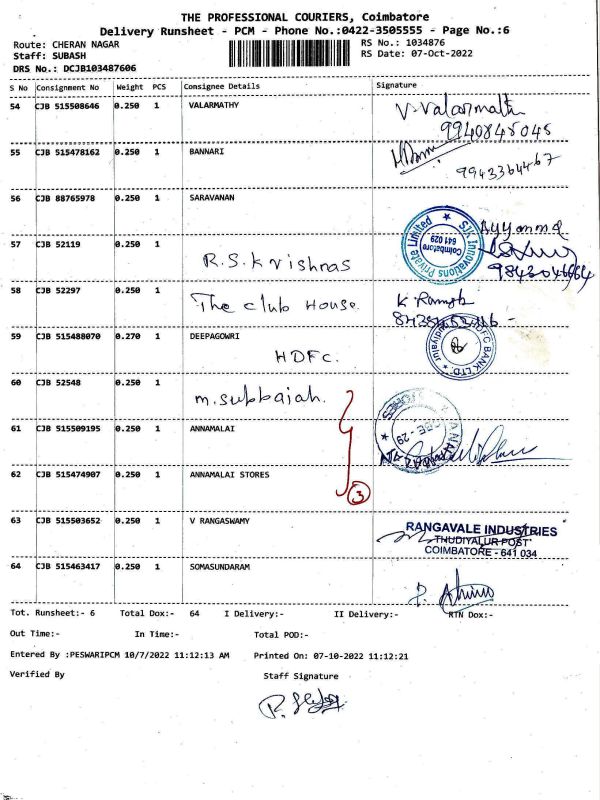 THE PROFESSIONAL COURIERS, Coimbatore
Delivery Runsheet - PCM - Phone No.:0422-3505555 - Page No.:6
Route: CHERAN NAGAR
RS No.: 1034876
Staff: SUBASH
RS Date: 07-Oct-2022
DRS No.: DCJB103487606
S No Consignment No Weight PCS Consignee Details Signature
54 CJB 515508646 0.250 1 VALARMATHY V. Valarmathi
9940845045
55 CJB 515478162 0.250 1 BANNARI
9943364467
56 CJB 88765978 0.250 1 SARAVANAN
SJK Innovations Private Limited
Coimbatore
641 029
57 CJB 52119 0.250 1 R.S.Krishnas
58 CJB 52297 0.250 1 The club House.
59 CJB 515488070 0.270 1 DEEPAGOWRI
HDFC.
HDFC BANK LTD.
60 CJB 52548 0.250 1 M. Subbaiah.
CBE - 29
61 CJB 515509195 0.250 1 ANNAMALAI
62 CJB 515474907 0.250 1 ANNAMALAI STORES
3
63 CJB 515503652 0.250 1 V RANGASWAMY
RANGAVALE INDUSTRIES
THUDIYALUR POST
COIMBATORE - 641 034
64 CJB 515463417 0.250 1 SOMASUNDARAM
Tot. Runsheet:- 6 Total Dox:- 64 I Delivery:- II Delivery:- RTN Dox:-
Out Time:- In Time:- Total POD:-
Entered By :PESWARIPCM 10/7/2022 11:12:13 AM Printed On: 07-10-2022 11:12:21
Verified By Staff Signature